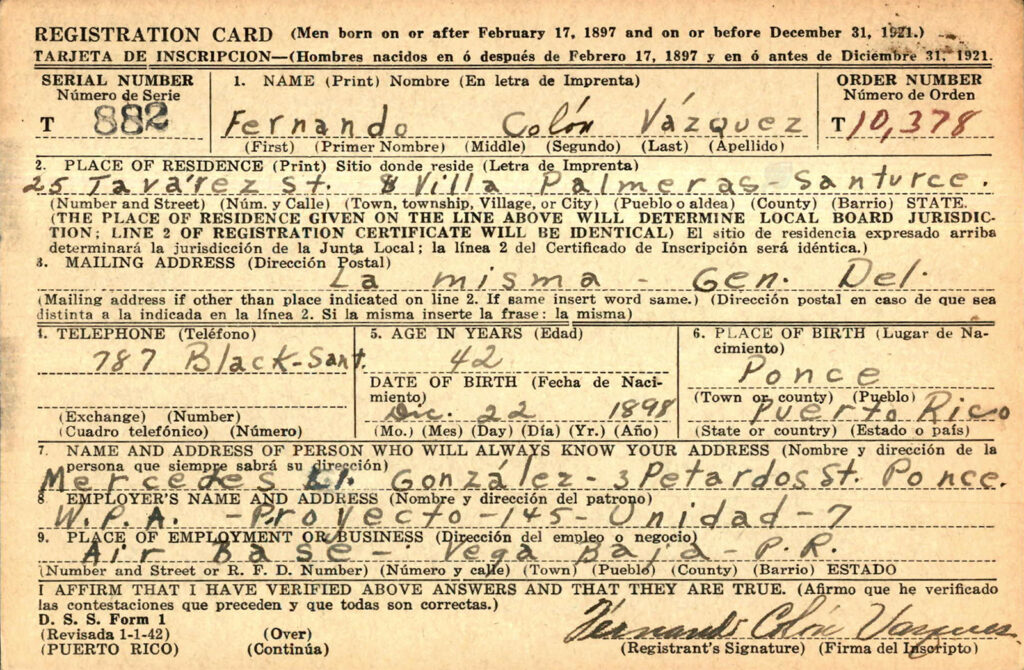 REGISTRATION CARD (Men born on or after February 17, 1897 and on or before December 31, 1921.)
TARJETA DE INSCRIPCION—(Hombres nacidos en ó después de Febrero 17, 1897 y en ó antes de Diciembre 31, 1921.
SERIAL NUMBER
Número de Serie
T 882
1. NAME (Print) Nombre (En letra de Imprenta)
Fernando Colón Vázquez
(First) (Primer Nombre) (Middle) (Segundo) (Last) (Apellido)
ORDER NUMBER
Número de Orden
T 10,378
2. PLACE OF RESIDENCE (Print) Sitio donde reside (Letra de Imprenta)
25 Tavárez St. Villa Palmeras - Santurce.
(Number and Street) (Núm. y Calle) (Town, township, Village, or City) (Pueblo o aldea) (County) (Barrio) STATE.
(THE PLACE OF RESIDENCE GIVEN ON THE LINE ABOVE WILL DETERMINE LOCAL BOARD JURISDIC-
TION; LINE 2 OF REGISTRATION CERTIFICATE WILL BE IDENTICAL) El sitio de residencia expresado arriba
determinará la jurisdicción de la Junta Local; la línea 2 del Certificado de Inscripción será idéntica.)
3. MAILING ADDRESS (Dirección Postal)
La misma - Gen. Del.
(Mailing address if other than place indicated on line 2. If same insert word same.) (Dirección postal en caso de que sea
distinta a la indicada en la línea 2. Si la misma inserte la frase: la misma)
4. TELEPHONE (Teléfono)
787 Black-Sant.
(Exchange) (Number)
(Cuadro telefónico) (Número)
5. AGE IN YEARS (Edad)
42
DATE OF BIRTH (Fecha de Naci-
miento)
Dic. 22 1898
(Mo.) (Mes) (Day) (Día) (Yr.) (Año)
6. PLACE OF BIRTH (Lugar de Na-
cimiento)
Ponce
(Town or county) (Pueblo)
Puerto Rico
(State or country) (Estado o país)
7. NAME AND ADDRESS OF PERSON WHO WILL ALWAYS KNOW YOUR ADDRESS (Nombre y dirección de la
persona que siempre sabrá su dirección)
Mercedes González - 3 Petardos St. Ponce.
8 EMPLOYER'S NAME AND ADDRESS (Nombre y dirección del patrono)
W.P.A. - Proyecto - 145 - Unidad - 7
9. PLACE OF EMPLOYMENT OR BUSINESS (Dirección del empleo o negocio)
Air Base - Vega Baja - P.R.
(Number and Street or R. F. D. Number) (Número y calle) (Town) (Pueblo) (County) (Barrio) ESTADO
I AFFIRM THAT I HAVE VERIFIED ABOVE ANSWERS AND THAT THEY ARE TRUE. (Afirmo que he verificado
las contestaciones que preceden y que todas son correctas.)
D. S. S. Form 1
(Revisada 1-1-42) (Over)
(PUERTO RICO) (Continúa)
Fernando Colón Vázquez
(Registrant's Signature) (Firma del Inscripto)